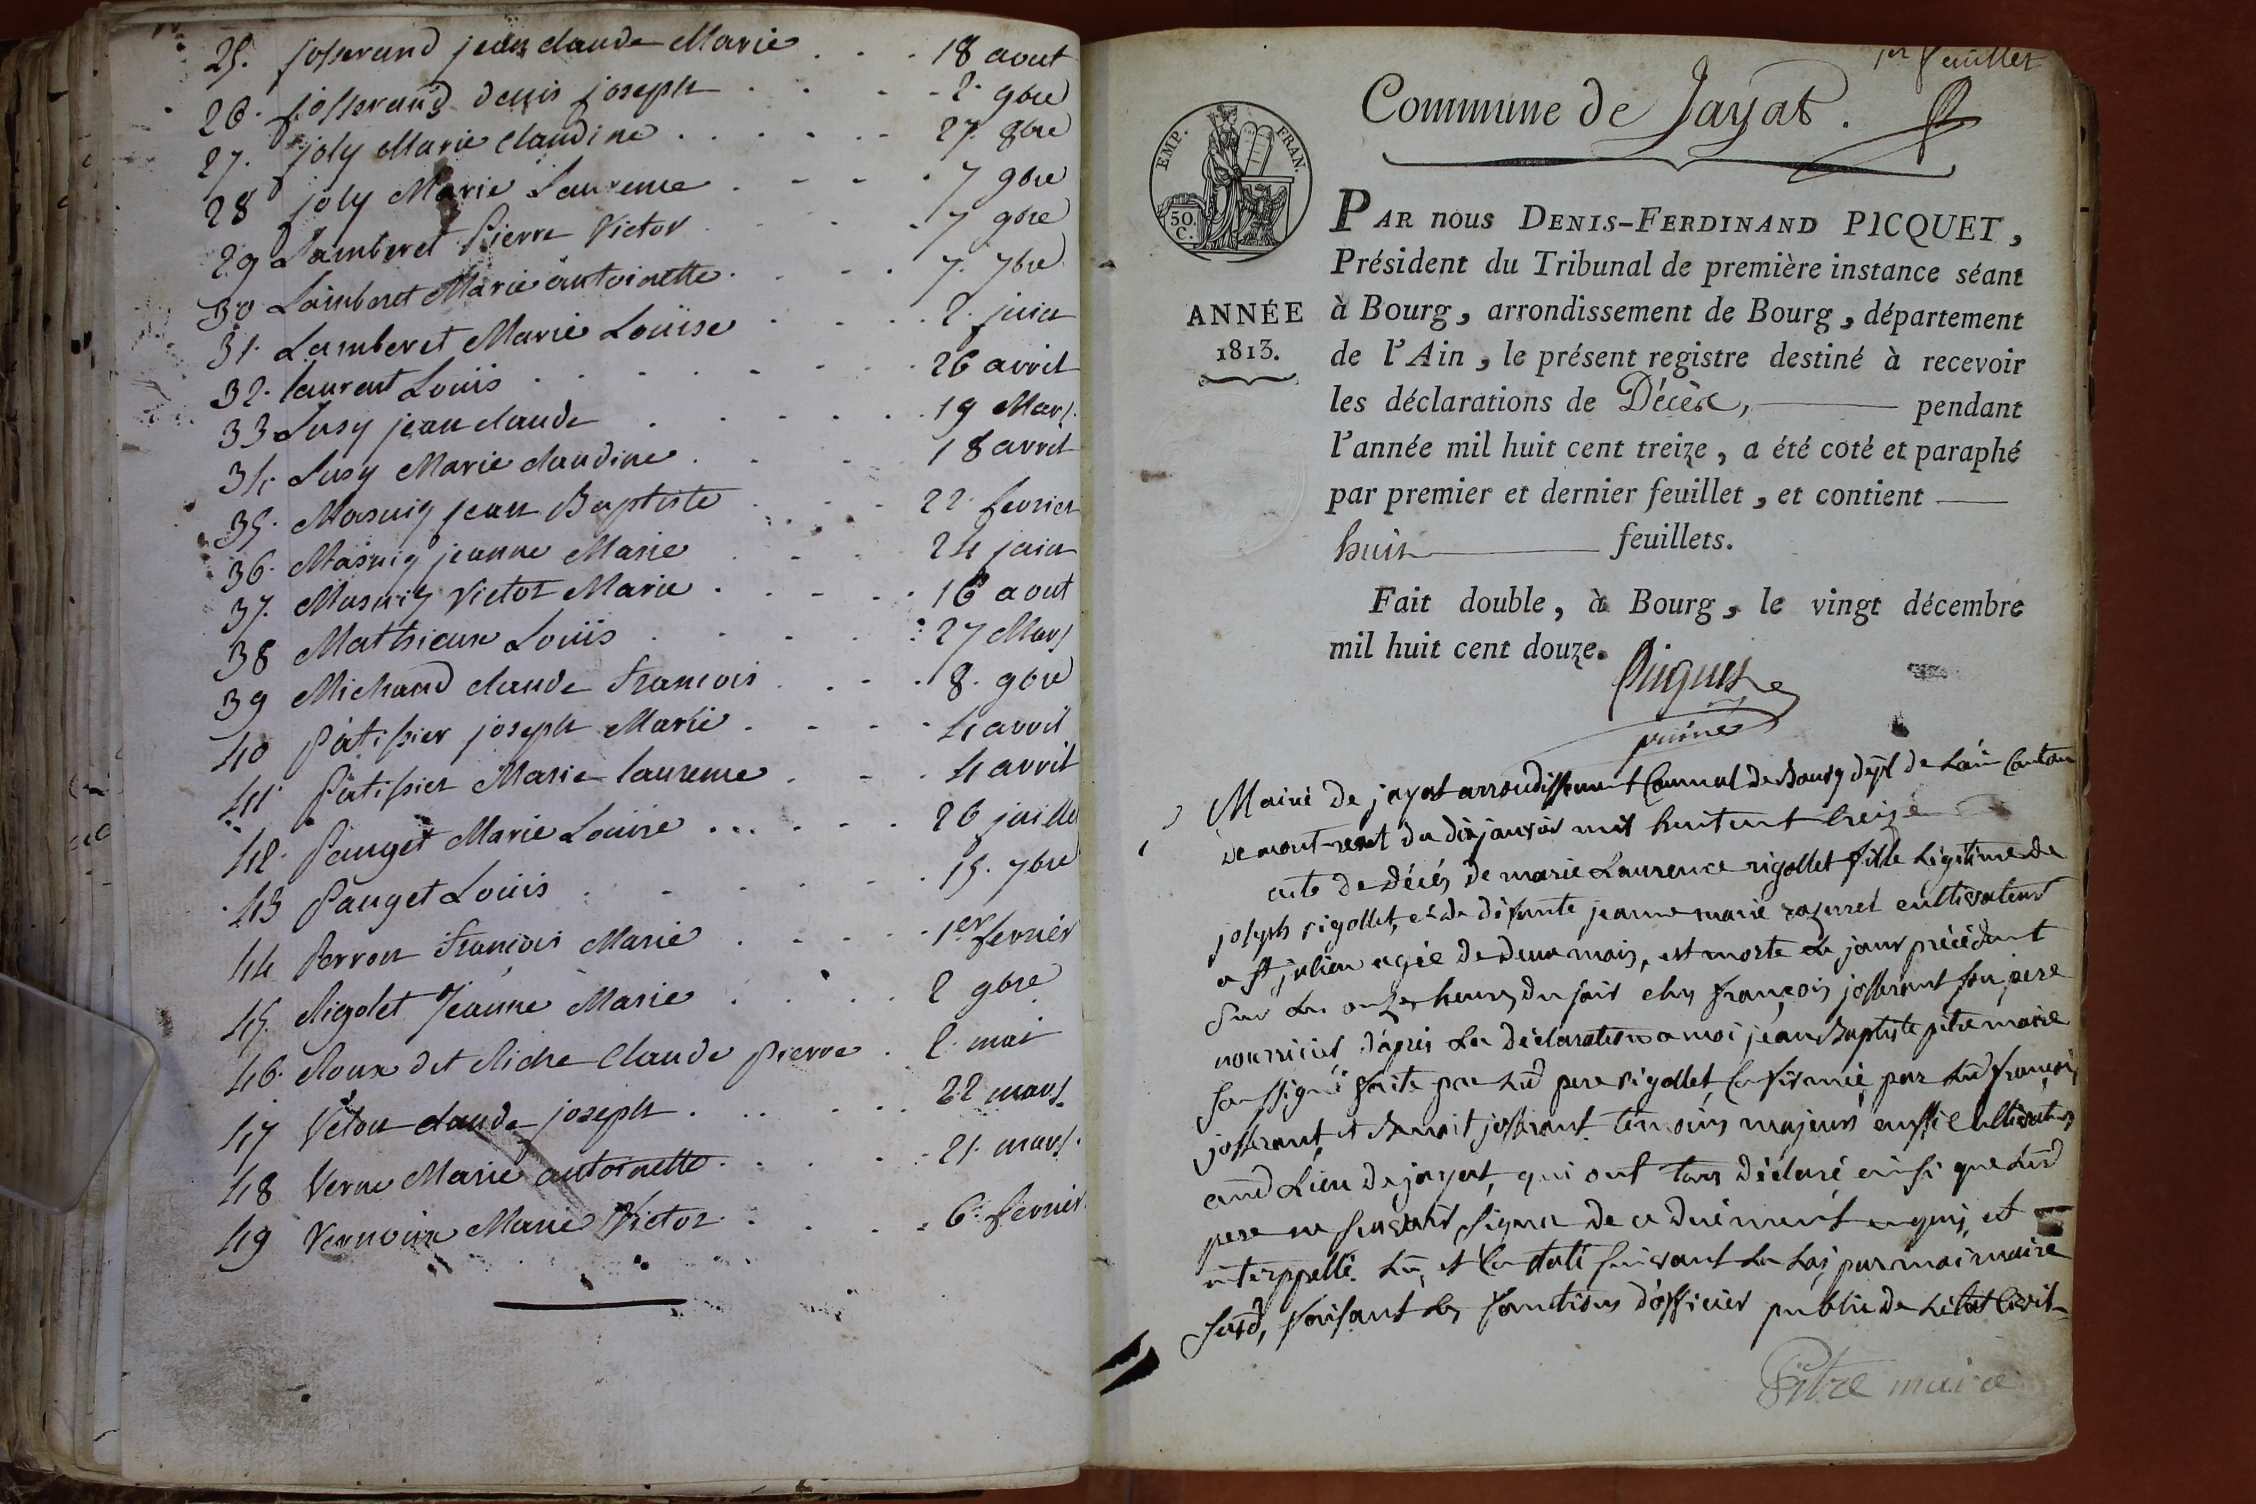 25. josserand jean claude Marie . . . 18 aout
26. josserand denis joseph . . . . 2. 9bre
27. joly Marie Claudine . . . . . . 27. 8bre
28 joly Marie Laurence . . . . 7 9bre
29 Lamberet Pierre Victor . . . . 7 9bre
30 Lamberet Marie antoinette . . . . 7. 7bre
31. Lamberet Marie Louise . . . . 2. juin
32. laurent Louis . . . . . . . 26 avril
33 Lusy jean claude . . . . . 19 Mars.
34. Lusy Marie claudine . . . 18 avril
35. Masuiy jean Baptiste . . . . 22 fevrier
36. Masuiy jeanne Marie . . . 24 juin
37. Masuiy Victor Marie . . . . . 16 aout
38 Mathieux Louis . . . . . 27 Mars
39 Michaud claude François . . . . 8. 9bre
40 Pàtissier joseph Marie . . . . 4 avril
41 Pàtissier Marie laurence . . . 4 avril
42. Pauget Marie Louise . . . . . . 26 juille
43 Pauget Louis . . . . . . 15. 7bre
44 Perron François Marie . . . . . 1er fevrier
45. Rigolet Jeanne Marie . . . . 2 9bre
46. Roux dit Riche Claude Pierre . 2. mai
47 Veton claude joseph . . . . . . 22 mars.
48 Verne Marie antoinette . . . . . 21. mars.
49 Vernoux Marie Victor . . . . . 6. fevrier
1er feuillet
Commune de Jayat.
EMP. FRAN.
50. C.
ANNÉE
1813.
PAR nous DENIS-FERDINAND PICQUET,
Président du Tribunal de première instance séant
à Bourg, arrondissement de Bourg, département
de l'Ain, le présent registre destiné à recevoir
les déclarations de Décès, pendant
l'année mil huit cent treize, a été coté et paraphé
par premier et dernier feuillet, et contient
huit feuillets.
Fait double, à Bourg, le vingt décembre
mil huit cent douze.
Picquet
Mairie de jayat arrondissement Communal de Bourg dépt de Lain Canton
de mont-revel du dix janvier mil huit cent treize
acte de décès de marie Laurence rigollet fille légitime de
joseph rigollet, et de défunte jeanne marie cultivateurs
a st julien agée de deux mois, est morte le jour précédent
sur les onze heures du soir chez françois josserant son pere
nourricier d'après la déclaration a moi jean Baptiste pitre maire
soussigné faite par led pere rigollet, Confirmée par led françois
josserant, et Benoit josserant témoins majeurs aussi Cultivateurs
aud Lieu de jayat, qui ont tous déclaré ainsi que led
pere ne savoir signer de ce duëment enquis, et
interppellé. Lu, et Constaté suivant la Loi par moi maire
susd, faisant les fonctions d'officier public de Létat Civil
Pitre maire